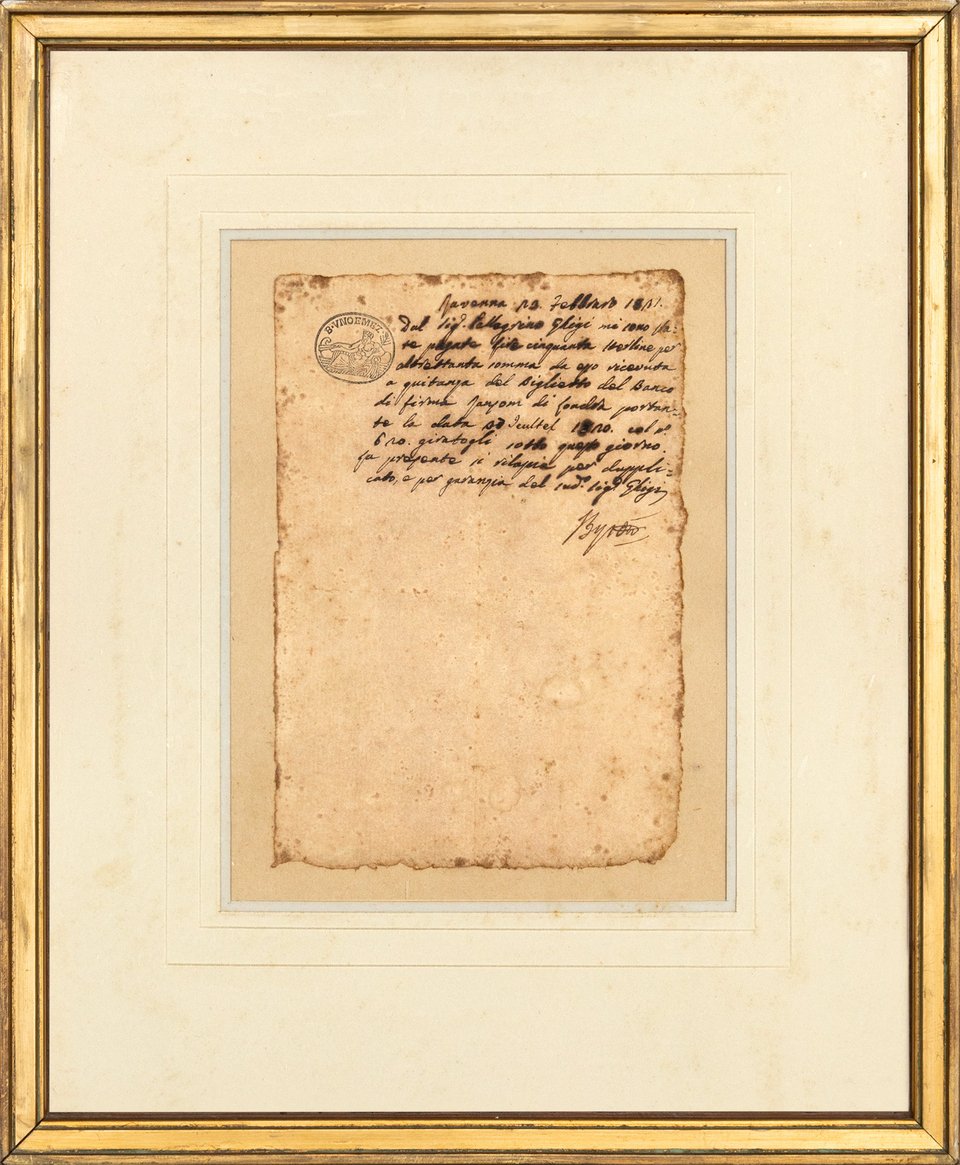 B. VNOEMEZ
Ravenna 23. Febbraro 1821.
Dal Sigr. Pellegrino Ghigi mi sono sta-
te pagate lire cinquanta sterline per
altrettanta somma da esso ricevuta
a quitanza del Biglietto del Banco
di firma Ransom di Londra portan-
te la data 1820. col n.
620. giratogli sotto questo giorno.
La presente si rilascia per dupli-
cato, e per garanzia del sud. Sigr. Ghigi
Byron